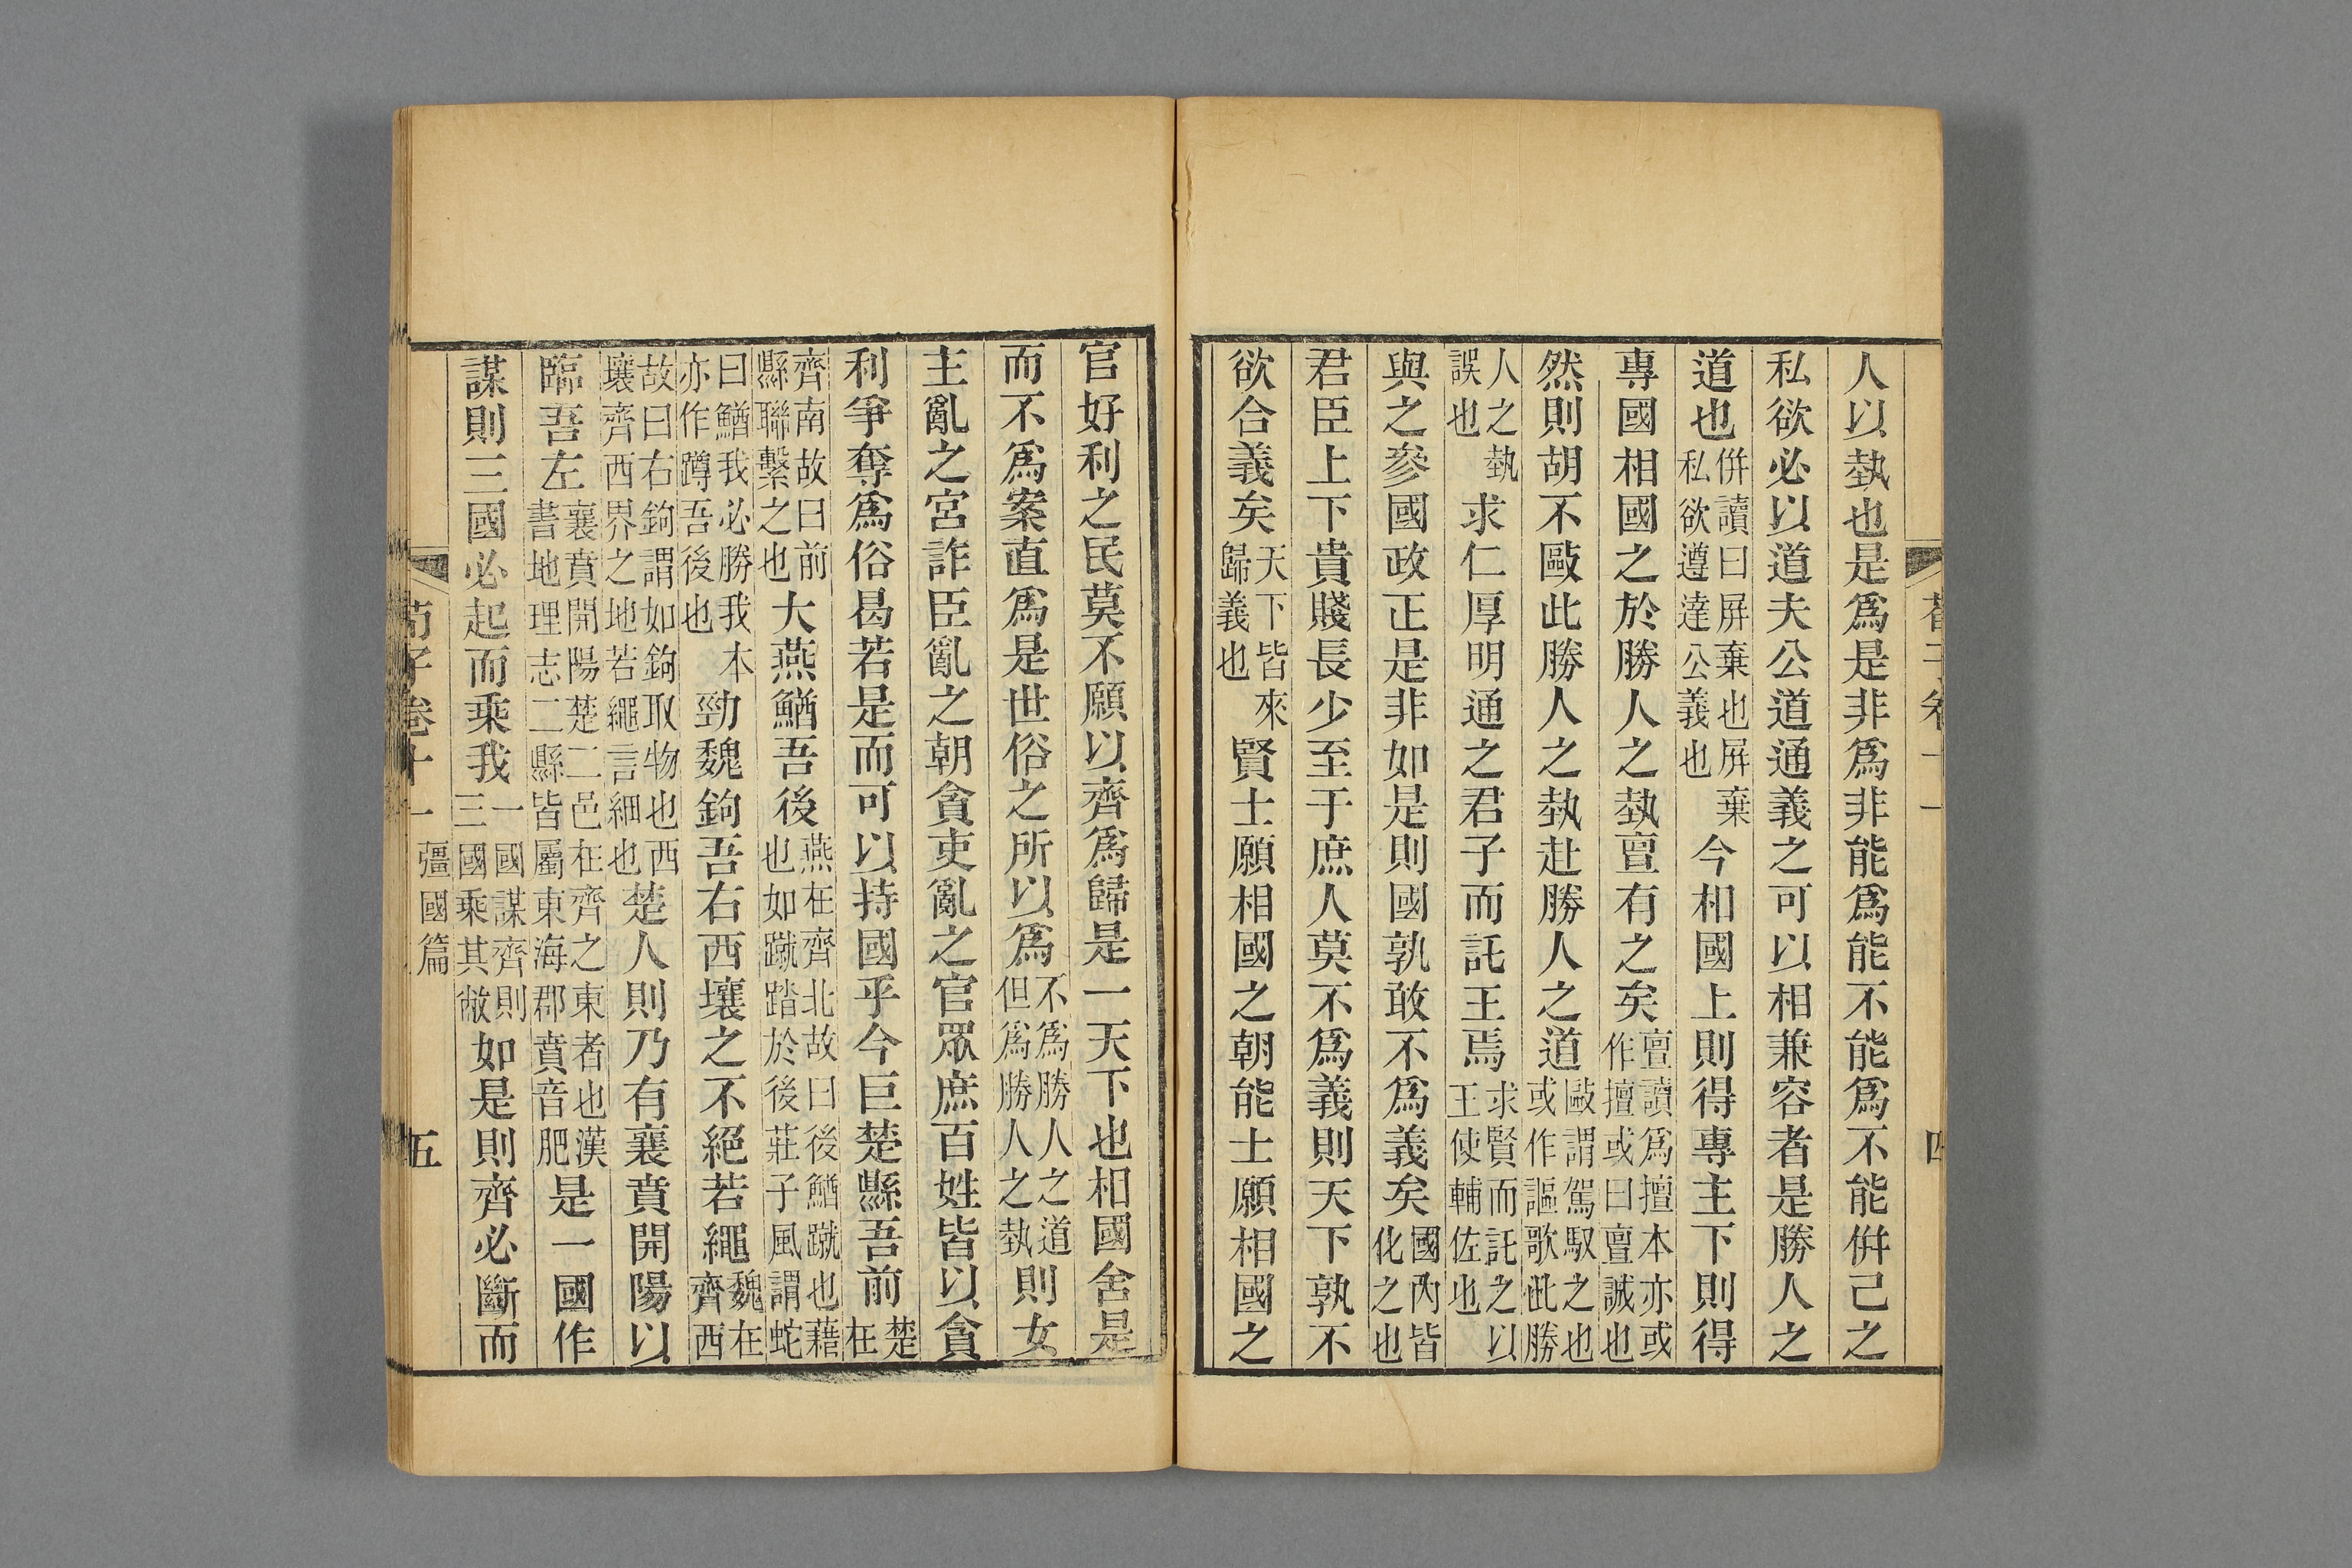 人以埶也是爲是非爲非能爲能不能爲不能倂己之
私欲必以道夫公道通義之可以相兼容者是勝人之
道也倂讀曰屏棄也屏棄私欲遵達公義也今相國上則得專主下則得
專國相國之於勝人之埶亶有之矣亶讀爲擅本亦或作擅或曰亶誠也
然則胡不毆此勝人之埶赴勝人之道毆謂駕馭之也或作謳歌此勝
人之埶誤也求仁厚明通之君子而託王焉求賢而託之以王使輔佐也
與之參國政正是非如是則國孰敢不爲義矣國內皆化之也
君臣上下貴賤長少至于庶人莫不爲義則天下孰不
欲合義矣天下皆來歸義也賢士願相國之朝能士願相國之
官好利之民莫不願以齊爲歸是一天下也相國舍是
而不爲案直爲是世俗之所以爲不爲勝人之道但爲勝人之埶則女
主亂之宮詐臣亂之朝貪吏亂之官眾庶百姓皆以貪
利爭奪爲俗曷若是而可以持國乎今巨楚縣吾前楚在
齊南故曰前縣聯繫之也大燕鰌吾後燕在齊北故曰後鰌蹴也藉也如蹴踏於後莊子風謂蛇
曰鰌我必勝我本亦作蹲吾後也勁魏鉤吾右西壤之不絕若繩魏在齊西
故曰右鉤謂如鉤取物也西壤齊西界之地若繩言細也楚人則乃有襄賁開陽以
臨吾左襄賁開陽楚二邑在齊之東者也漢書地理志二縣皆屬東海郡賁音肥是一國作
謀則三國必起而乘我一國謀齊則三國乘其敝如是則齊必斷而
荀子卷十一 彊國篇 五